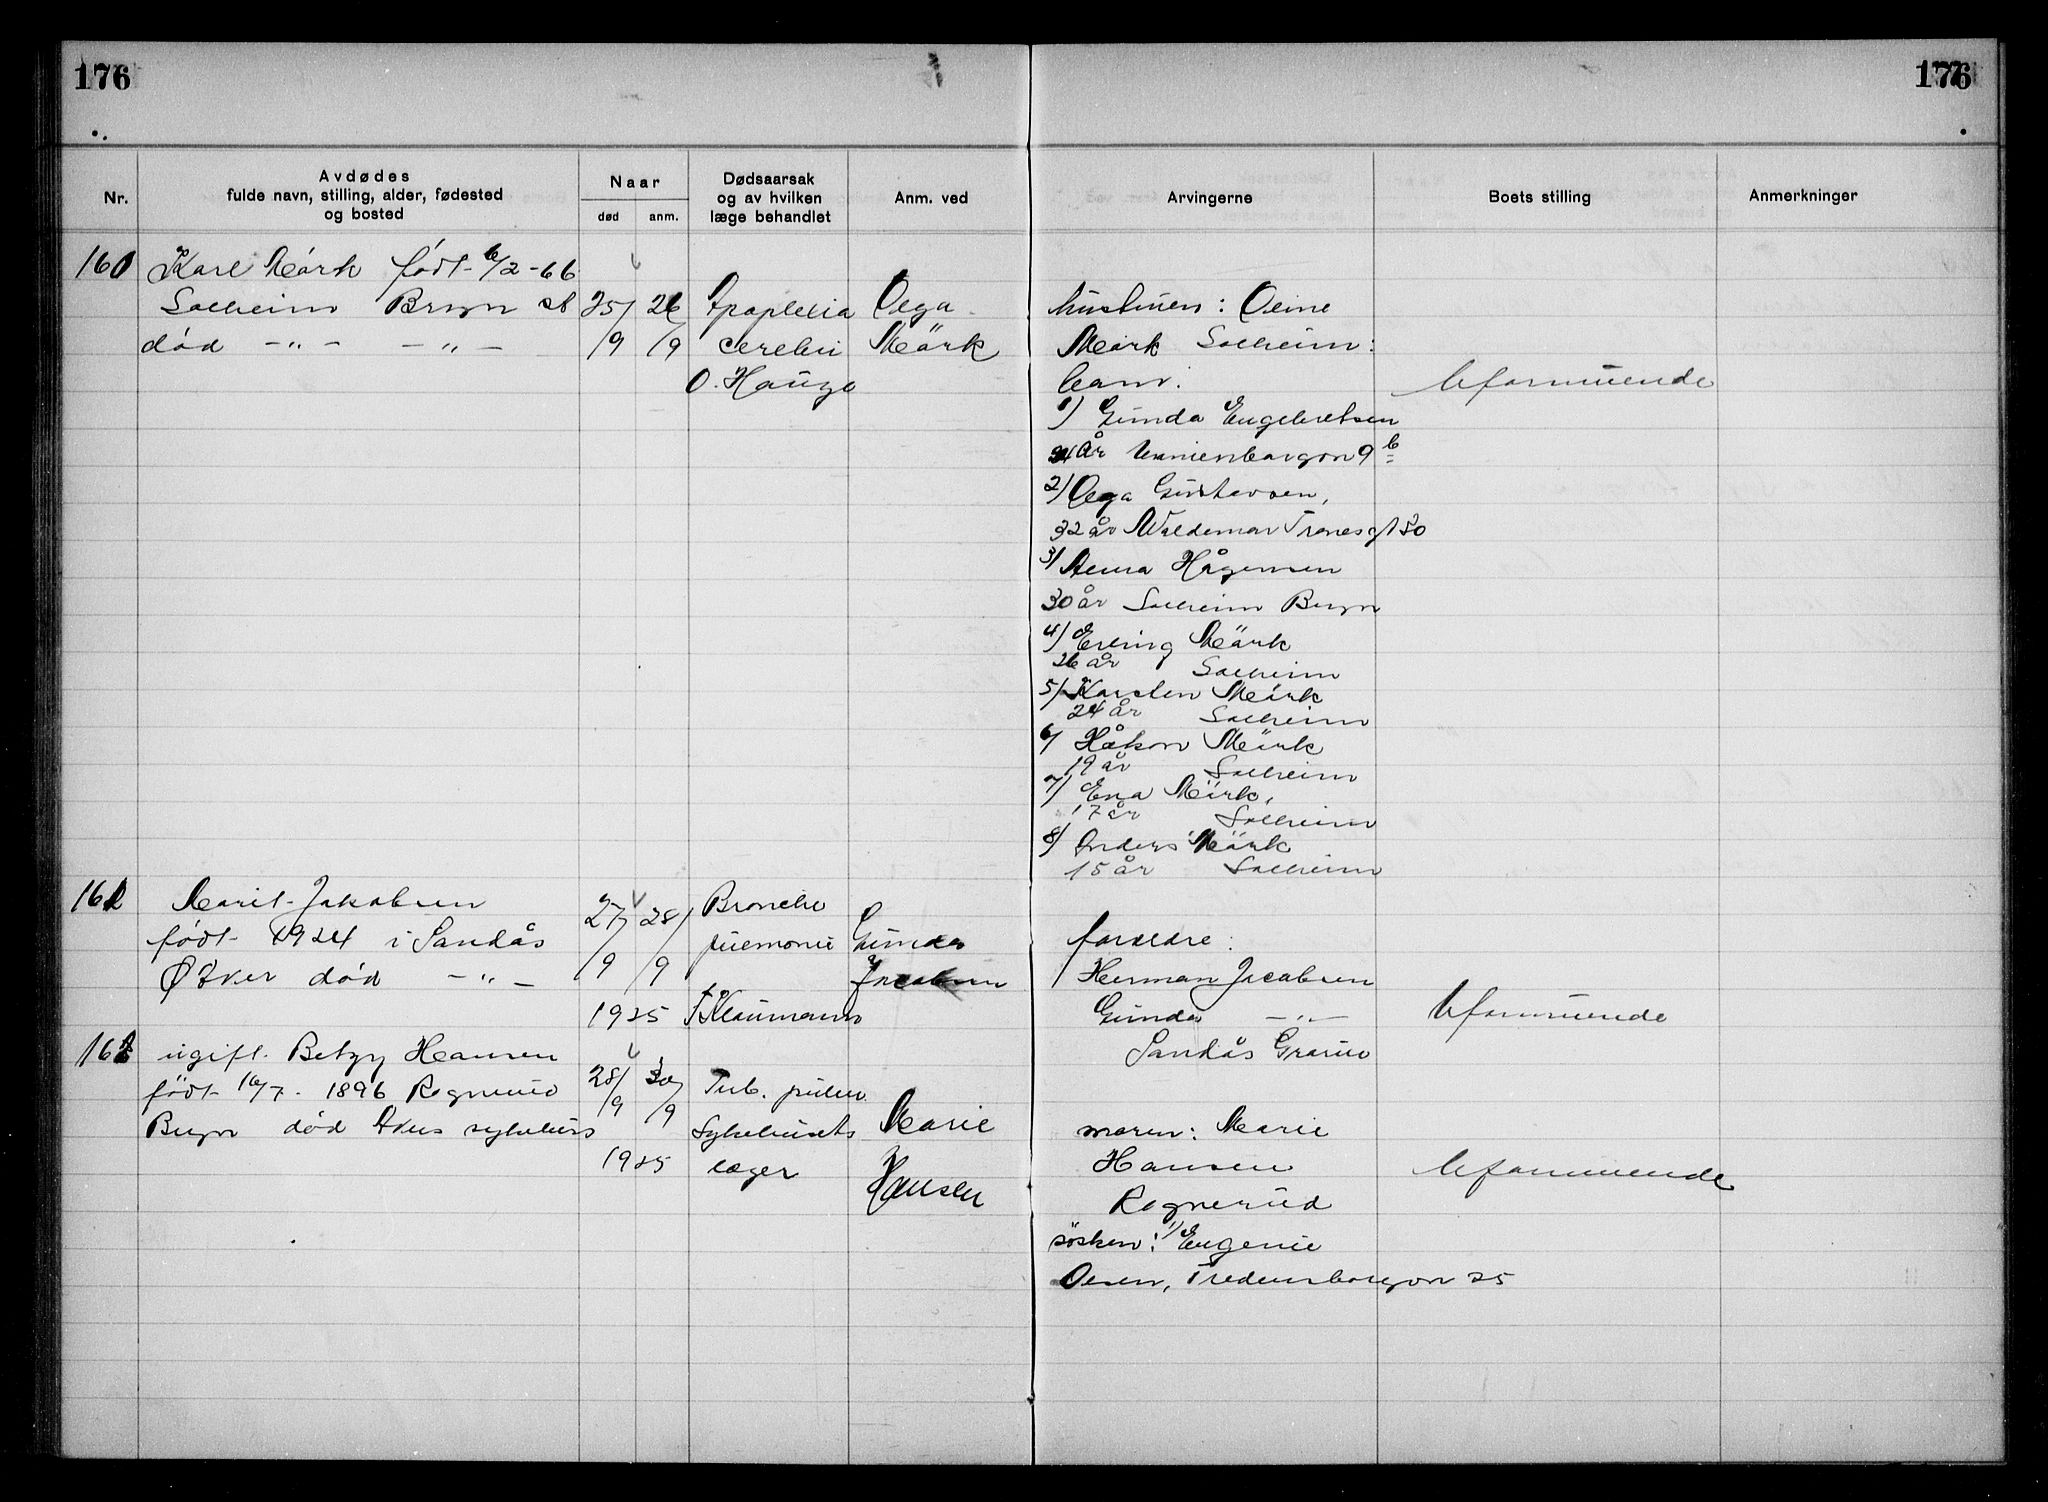 176
176
Nr.
Avdødes
fulde navn, stilling, alder, fødested
og bosted
Naar
død
anm.
Dødsaarsak
og av hvilken
læge behandlet
Anm. ved
Arvingerne
Boets stilling
Anmerkninger
160
Karl Mörk født 6/2-66
Solheim Bryn st
død -"- -"-
25/9
26/9
Apoplexia
cerebri
O. Hauge
Olga
Märk
hustruen: Oline
Mörk Solheim:
barn:
Uformuende
1) Gunda Engebretsen
34 år Enerhauggn 9 b
2) Olga Gustavsen,
32 år Waldemar Tranesgt 30
3) Anna Hågensen
30 år Solheim Bryn
4) Erling Märk
26 år Solheim
5) Karsten Märk
24 år Solheim
6) Håkon Märk
19 år Solheim
7) Ena Märk,
17 år Solheim
8) Anders Märk
15 år Solheim
161
Marit Jakobsen
født 1924 i Sandås
Ø Aker død -"-
27/9
28/9
1925
Bronchi
pnemonie
Klaumann
Gunda
Jacobsen
foreldre:
Herman Jacobsen
Gunda -"-
Sandås Grorud
Uformuende
162
ugift. Betzy Hansen
født 16/7. 1896 Rognerud
Bryn død Akers sykehus
28/9
30/9
1925
Tub. pulm.
Sykehusets
læger
Marie
Hansen
moren: Marie
Hansen
Rognerud
Uformuende
søsken: 1) Eugenie
Olsen, Fredensborgvn 25